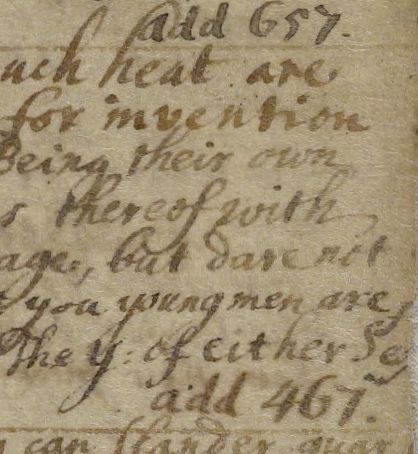 add 657.
uch heat are
for invention
Being their own
s thereof with
age, but dare not
t you yungmen are
The y: of either Se
add 467.
can slander quar